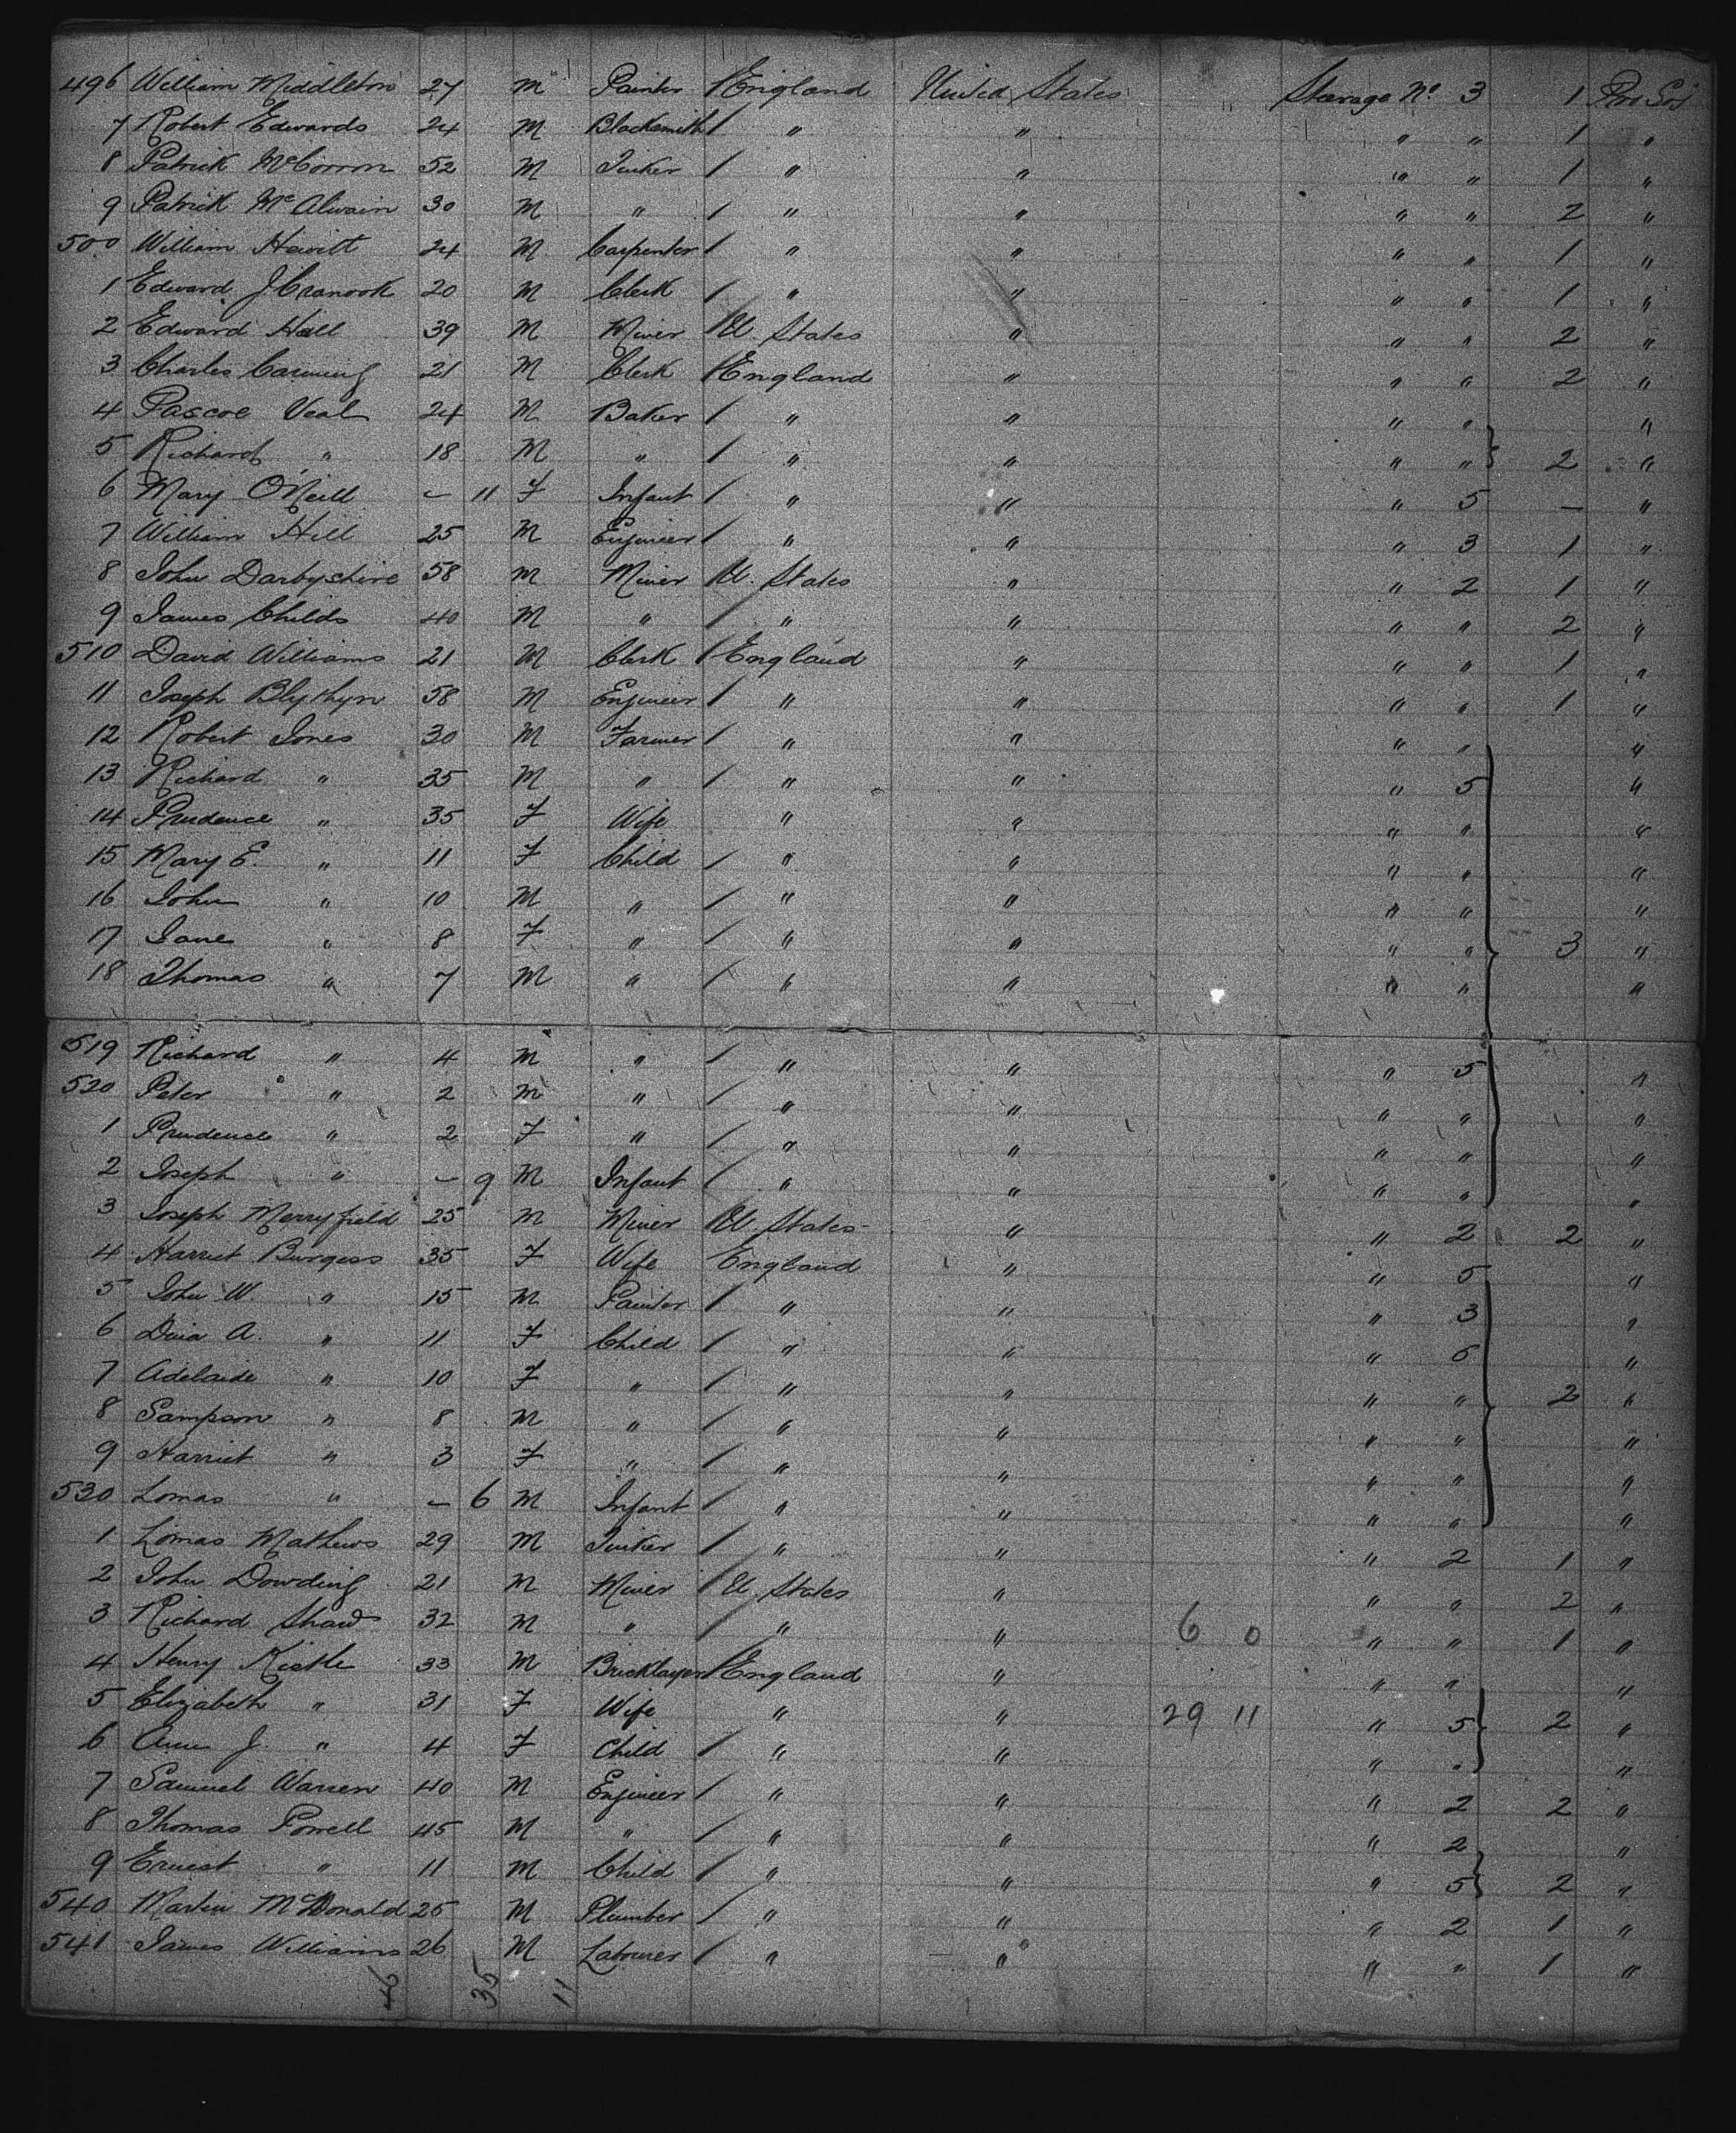 496 William Middleton 27 M Painter / England United States Steerage No. 3 1 Pro Soj
7 Robert Edwards 24 M Blacksmith / " " " " 1 "
8 Patrick 52 M Tinker / " " " " 1 "
9 Patrick McAlwain 30 M " / " " " " 2 "
500 William Hewitt 24 M Carpenter / " " " " 1 "
1 Edward J Cranook 20 M Clerk / " " " " 1 "
2 Edward Hall 39 M Miner / U. States " " " 2 "
3 Charles Canning 21 M Clerk / England " " " 2 "
4 Pascoe Veal 24 M Baker / " " " " "
5 Richard " 18 M " / " " " " 2 "
6 Mary O'Neill - 11 F Infant / " " " 5 - "
7 William Hill 25 M Engineer / " " " 3 1 "
8 John Darbyshire 58 M Miner / U. States " " 2 1 "
9 James Childs 40 M " / " " " " 2 "
510 David Williams 21 M Clerk / England " " " 1 "
11 Joseph Blythyn 58 M Engineer / " " " " 1 "
12 Robert Jones 30 M Farmer / " " " " "
13 Richard " 35 M " / " " " 5 "
14 Prudence " 35 F Wife " " " " "
15 Mary E. " 11 F Child / " " " " "
16 John " 10 M " / " " " " "
17 Jane " 8 F " / " " " " 3 "
18 Thomas " 7 M " / " " " " "
519 Richard " 4 M " / " " " 5 "
520 Peter " 2 M " / " " " " "
1 Prudence " 2 F " / " " " " "
2 Joseph " - 9 M Infant / " " " " "
3 Joseph Merryfield 25 M Miner / U. States " " 2 2 "
4 Harriet Burgess 35 F Wife England " " 5 "
5 John W. " 15 M Painter / " " " 3 "
6 A. " 11 F Child / " " " 5 "
7 Adelaide " 10 F " / " " " " 2 "
8 Sampson " 8 M " / " " " " "
9 Harriet " 3 F " / " " " " "
530 Lomas " - 6 M Infant / " " " " "
1 Lomas Mathews 29 M Tinker / " " " 2 1 "
2 John Dowding 21 M Miner / U. States " " " 2 "
3 Richard Shaw 32 M " / " " 6 0 " " 1 "
4 Henry Kistle 33 M Bricklayer / England " " " "
5 Elizabeth " 31 F Wife " " 29 11 " 5 2 "
6 Ann J. " 4 F Child / " " " " "
7 Samuel Warren 40 M Engineer / " " " 2 2 "
8 Thomas Powell 45 M " / " " " 2 "
9 Ernest " 11 M Child / " " " 5 2 "
540 Martin McDonald 25 M Plumber / " " " 2 1 "
541 James Williams 26 M Labourer / " " " " 1 "
46 35 11